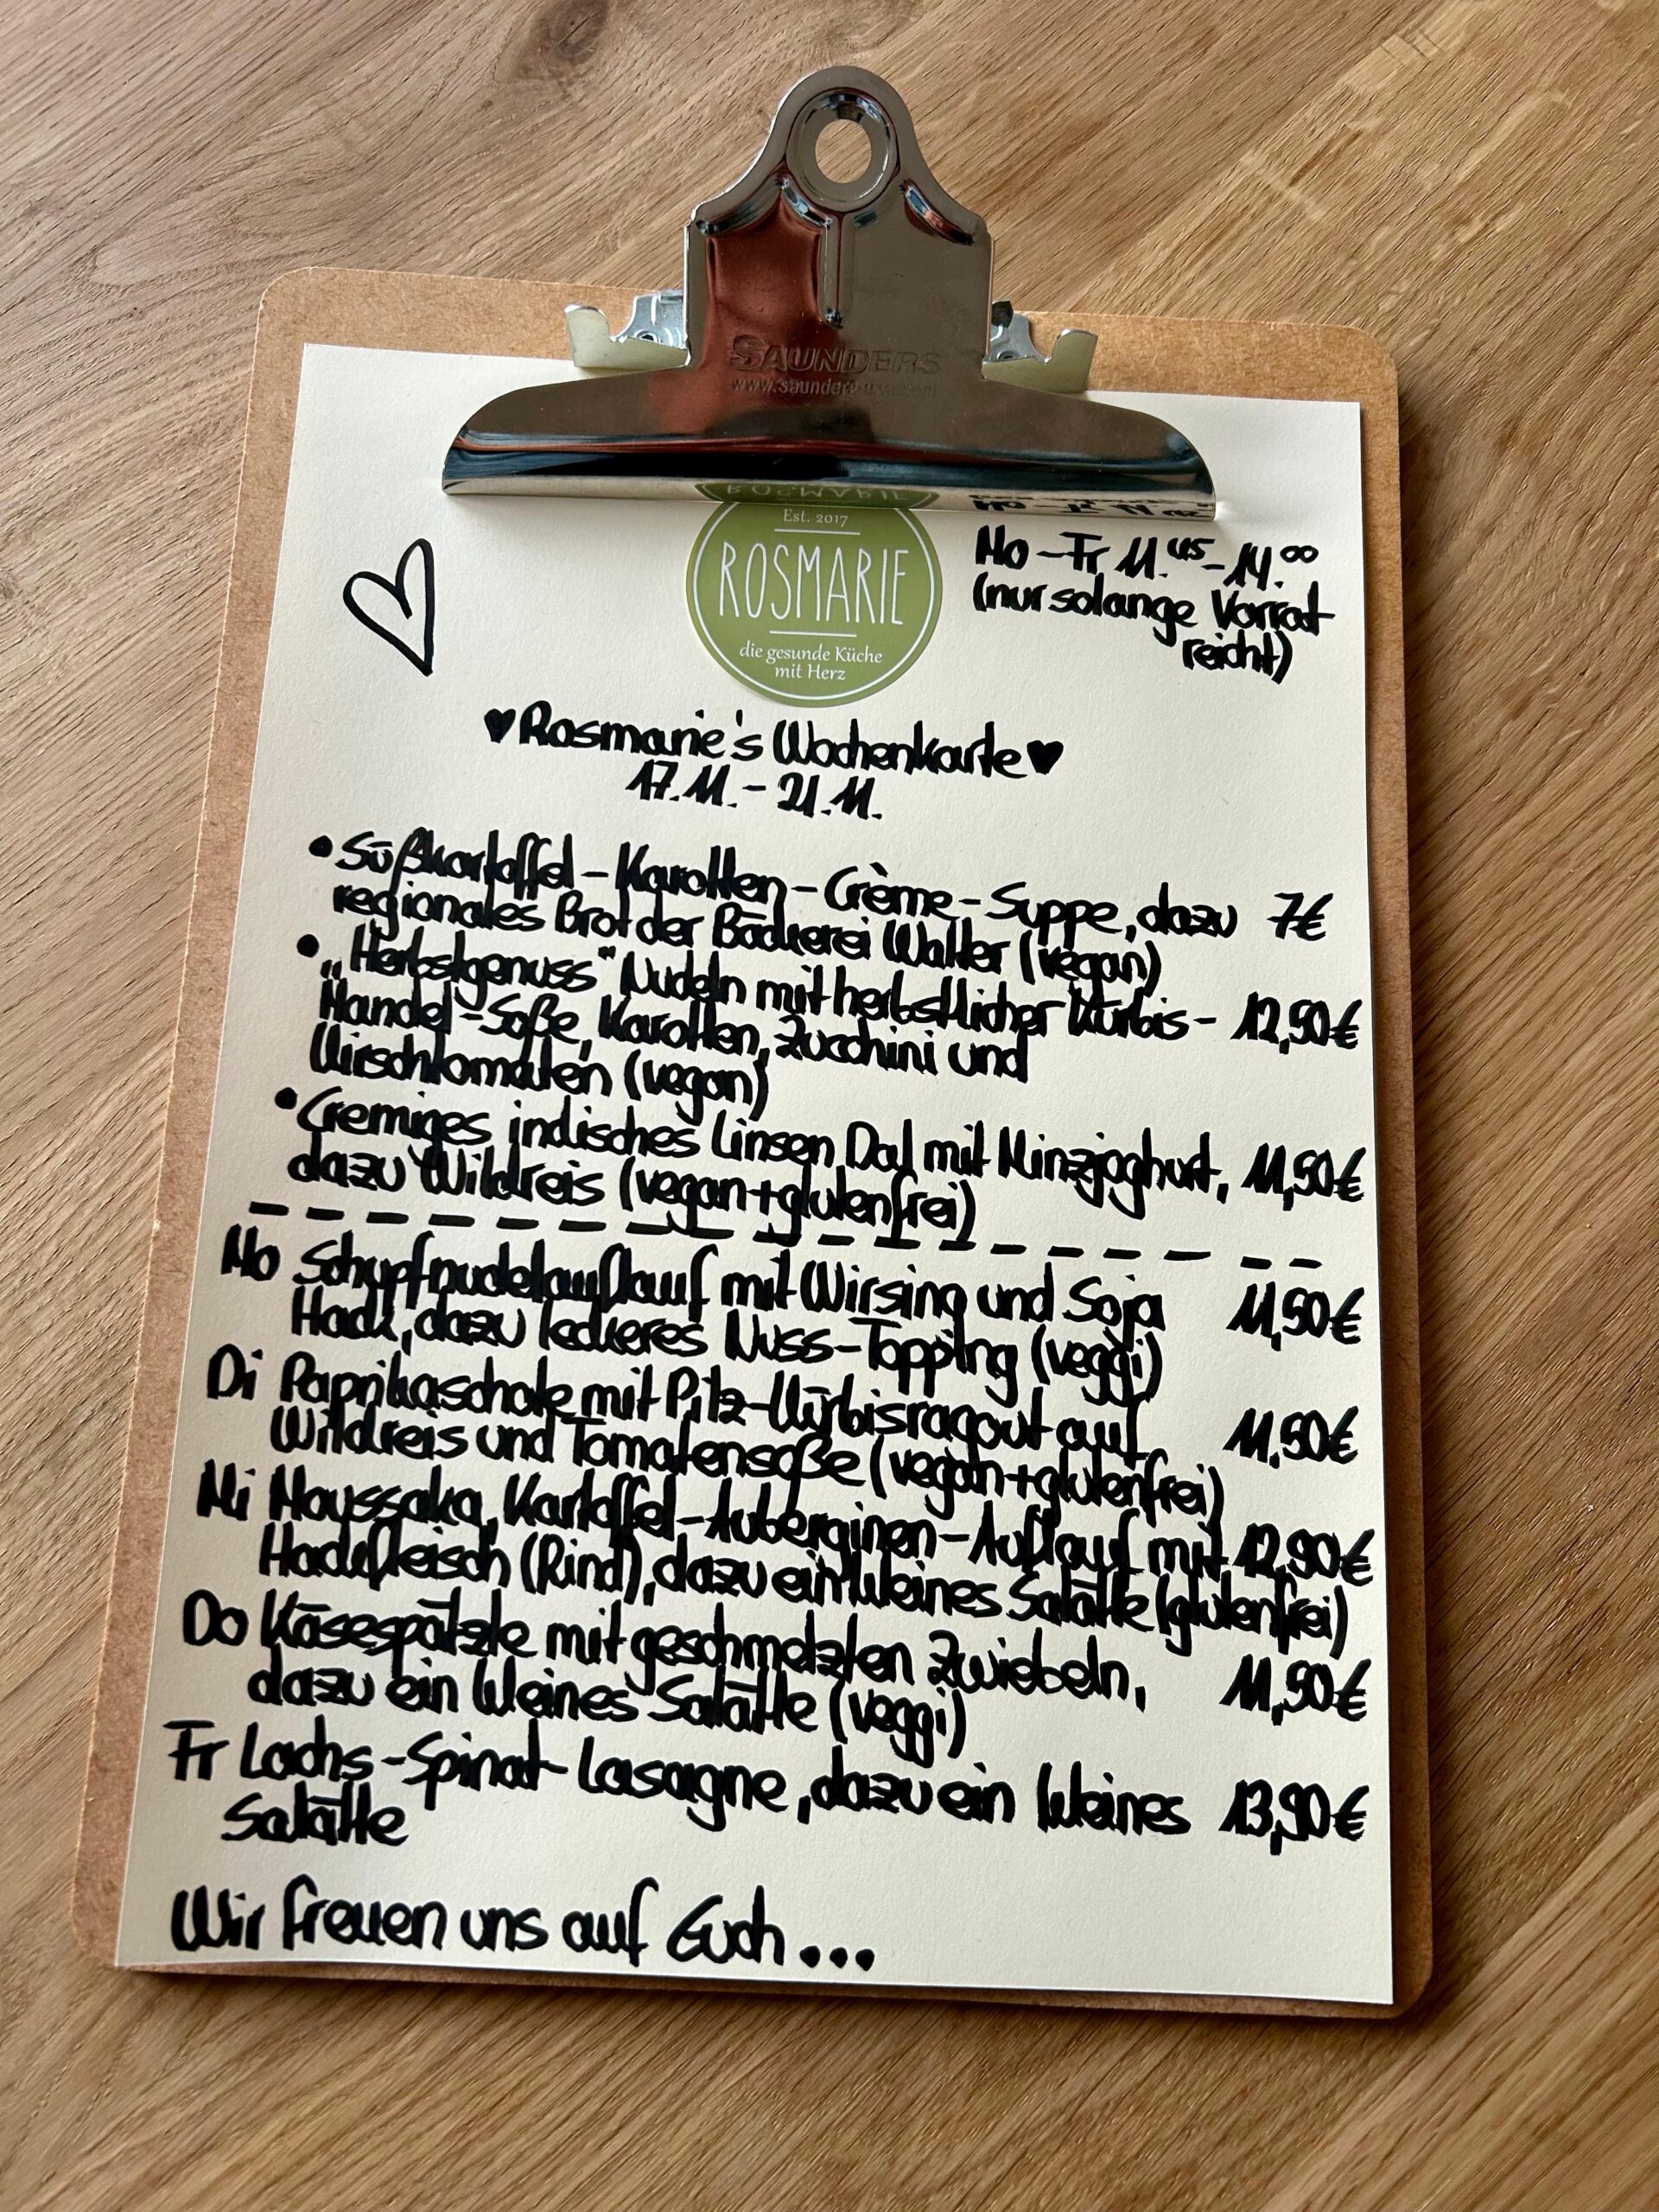 SAUNDERS
www.saunders-usa.com
Est. 2017
ROSMARIE
die gesunde Küche
mit Herz
Mo-Fr 11.45-14.00
(nur solange Vorrat
reicht)
♥Rosmarie's Wochenkarte♥
17.11.-21.11.
• Süßkartoffel-Karotten-Crème-Suppe, dazu 7€
regionales Brot der Bäckerei Walter (vegan)
• „Herbstgenuss" Nudeln mit herbstlicher Kürbis- 12,50€
Mandel-Soße, Karotten, Zucchini und
Kirschtomaten (vegan)
• Cremiges indisches Linsen Dal mit Minzjoghurt, 11,50€
dazu Wildreis (vegan+glutenfrei)
Mo Schupfnudelauflauf mit Wirsing und Soja 11,50€
Hack, dazu leckeres Nuss-Topping (veggi)
Di Paprikaschote mit Pilz-Kürbisragout auf 11,50€
Wildreis und Tomatensoße (vegan+glutenfrei)
Mi Moussaka, Kartoffel-Auberginen-Auflauf mit 12,90€
Hackfleisch (Rind), dazu ein kleines Salätle (glutenfrei)
Do Käsespätzle mit geschmelzten Zwiebeln, 11,50€
dazu ein kleines Salätle (veggi)
Fr Lachs-Spinat-Lasagne, dazu ein kleines 13,90€
Salätle
Wir freuen uns auf Euch...